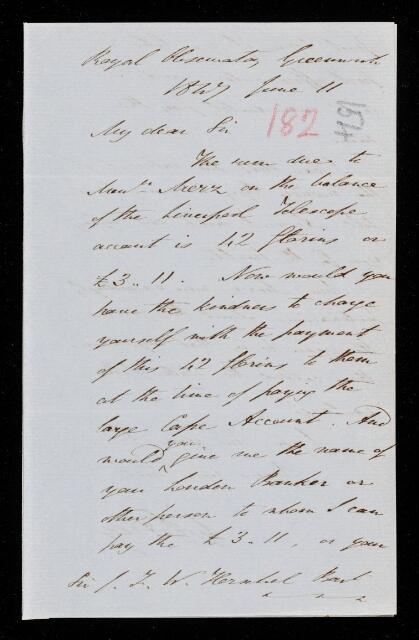 Royal Observatory Greenwich
1847 June 11
182
My dear Sir
The sum due to
Mess.rs Merz on the balance
of the Liverpool Telescope
account is 42 florins or
£3..11. Now would you
have the kindness to charge
yourself with the payment
of this 42 florins to them
at the time of paying the
large Cape Account. And
would you give me the name of
your London Banker or
other person to whom I can
pay the £3..11, or your
Sir J. F. W. Herschel Bart